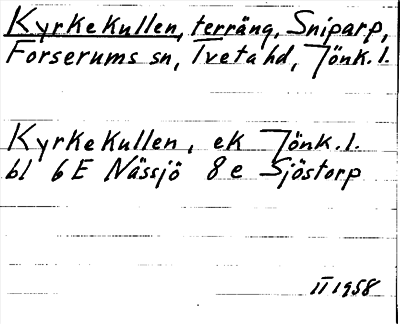 Kyrkekullen, terräng, Sniparp,
Forserums sn, Tveta hd, Jönk.l.
Kyrkekullen, ek Jönk.l.
bl 6E Nässjö 8e Sjöstorp
II 1958